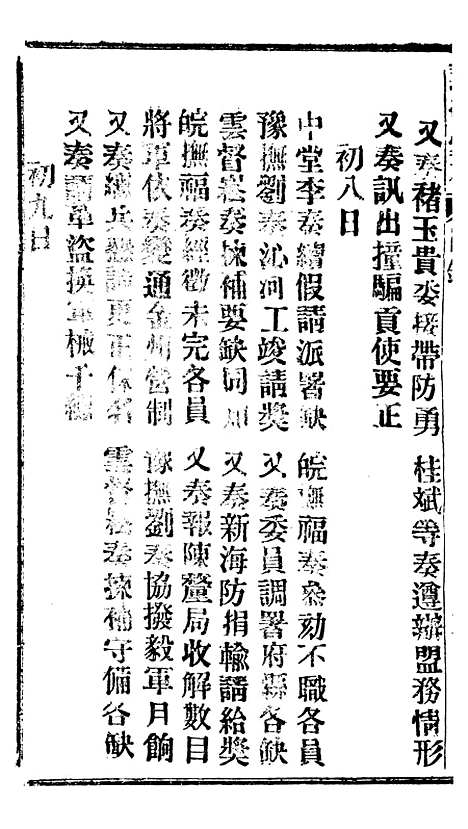 又奏褚玉貴委接帶防勇　桂斌等奏遵辦盟務情形
又奏訊出撞騙貢使要正
初八日
中堂李奏續假請派署缺　皖撫福奏叅劾不職各員
豫撫劉奏沁河工竣請獎　又奏委員調署府縣各缺
雲督崧奏揀補要缺同知　又奏新海防捐輸請給獎
皖撫福奏經徵未完各員　又奏報陳釐局收解數目
將軍依奏變通金州營制　豫撫劉奏協撥毅軍月餉
又奏總兵　請更正保　雲督崧奏揀補守備各缺
又奏請革盜換軍械千總
初九日